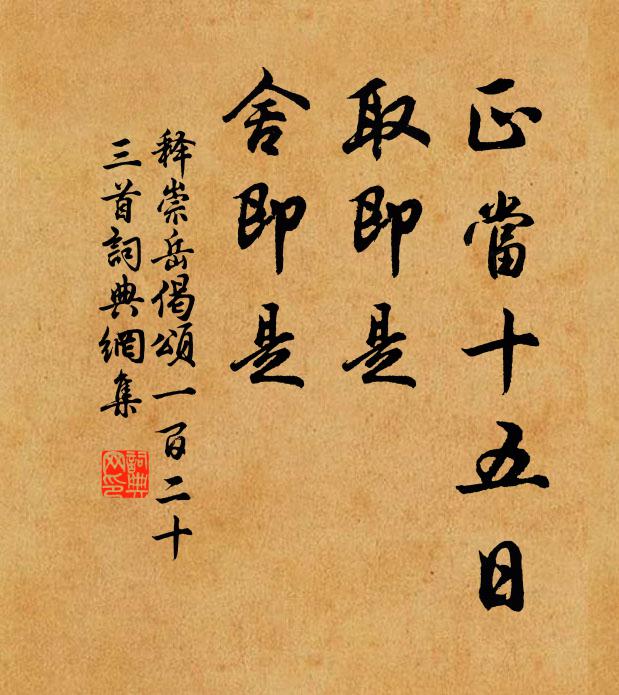 正當十五日
取即是
舍即是
释崇岳偈頌一百二十
三首詞典網集
詞典网印